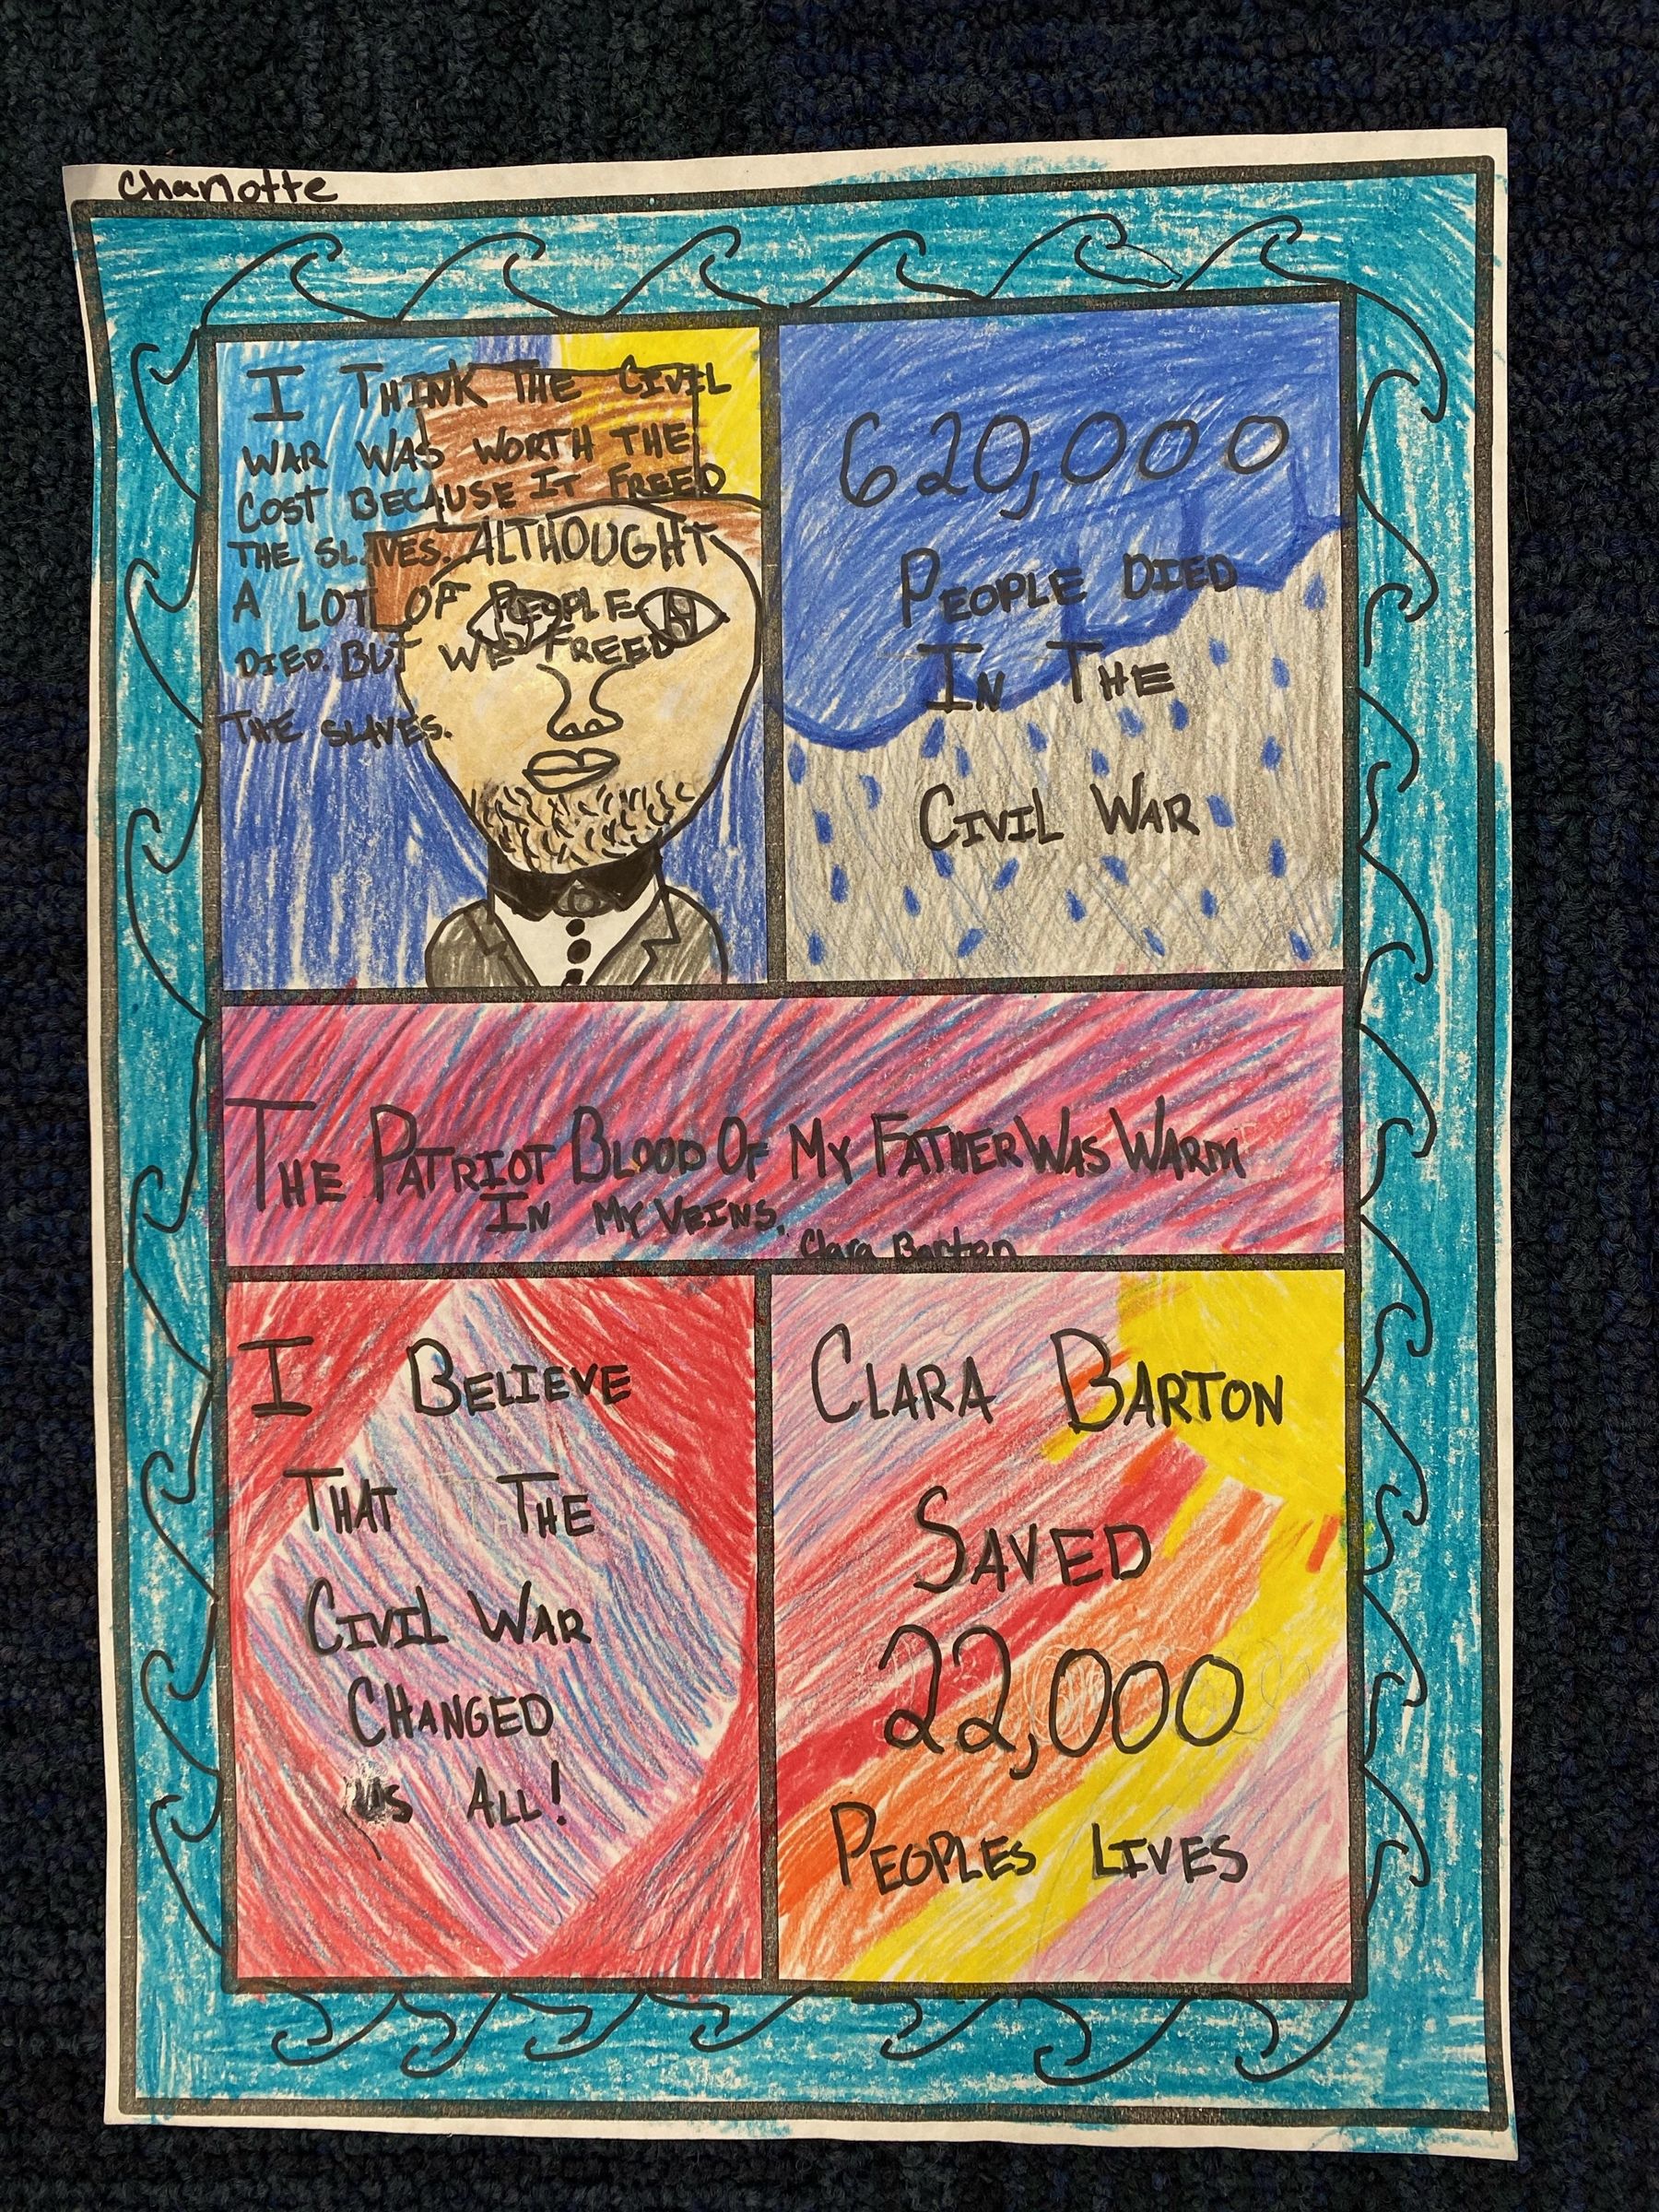 Charlotte
I THINK THE CIVIL
WAR WAS WORTH THE
COST BECAUSE IT FREED
THE SLAVES. ALTHOUGHT
A LOT OF PEOPLE
DIED. BUT WE FREED
THE SLAVES.
620,000
PEOPLE DIED
IN THE
CIVIL WAR
THE PATRIOT BLOOD OF MY FATHER WAS WARM
IN MY VEINS.
Clara Barton
I BELIEVE
THAT THE
CIVIL WAR
CHANGED
US ALL!
CLARA BARTON
SAVED
22,000
PEOPLES LIVES